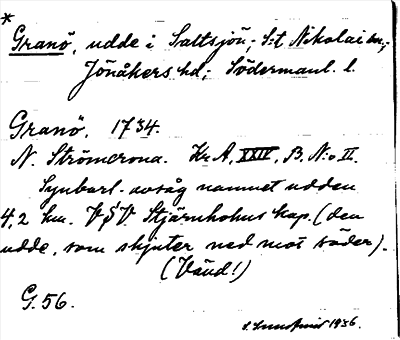 *
Granö, udde i Saltsjön; S:t Nikolai sn.;
Jönåkers hd; Södermanl. l.
Granö. 1734.
N. Strömcrona. Kr A, XXIV, B. N:o II.
Synbarl. avsåg namnet udden
4,2 km. VSV Stjärnholms kap. (den
udde, som skjuter ned mot söder).
(Vänd!)
G. 56.
1936.